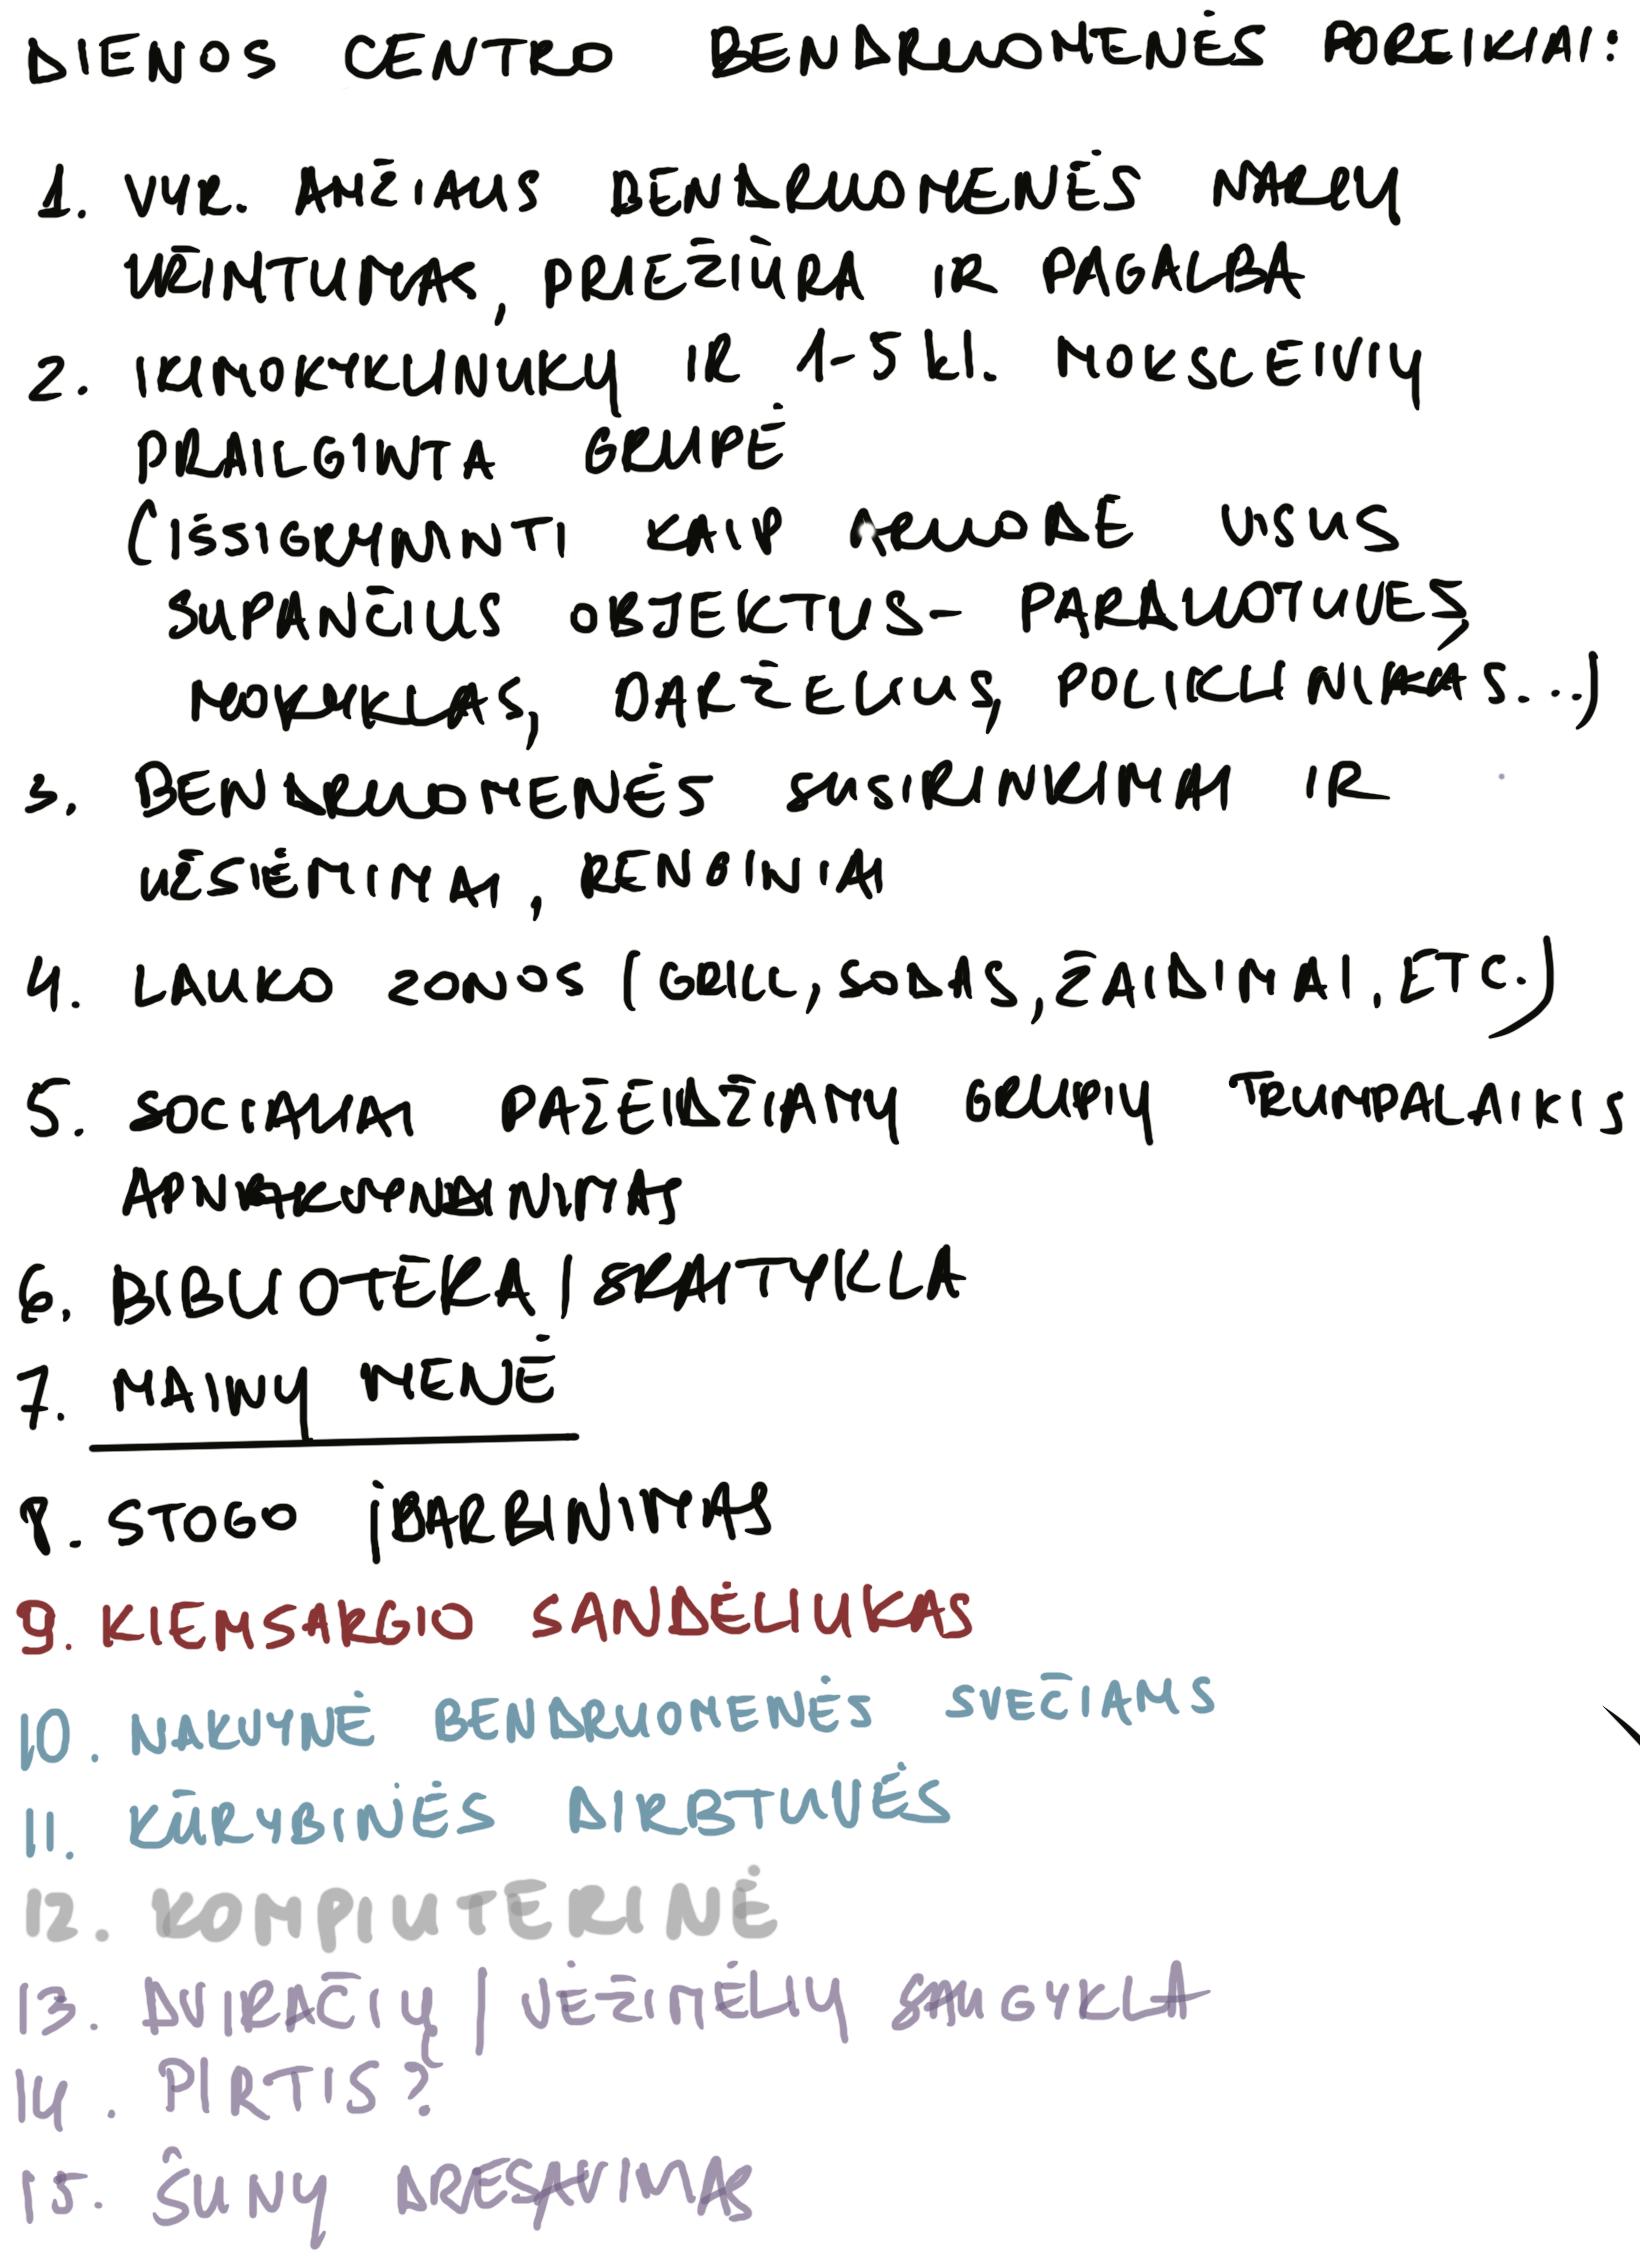 DIENOS CENTRO BENDRUOMENĖS POREIKIAI:
1. VYR. AMŽIAUS BENDRUOMENĖS NARIŲ
UŽIMTUMAS, PRIEŽIŪRA IR PAGALBA
2. IKIMOKYKLINUKŲ IR 1-5 kl. MOKSLEIVIŲ
PRAILGINTA GRUPĖ
(IŠSIGRYNINTI KAIP ATRODE VISUS
SUPANČIUS OBJEKTUS- PARDUOTUVES,
MOKYKLAS, DARŽELIUS, POLIKLINIKAS...)
3. BENDRUOMENĖS SUSIRINKIMAI IR
UŽSIĖMIMAI, RENGINIAI
4. LAUKO ZONOS (GRILL, SODAS, ŽAIDIMAI, ETC.)
5. SOCIALIAI PAŽEIDŽIAMŲ GRUPIŲ TRUMPALAIKIS
APNAKVYNDINIMAS
6. BIBLIOTĖKA / SKAITYKLA
7. MAINŲ MENĖ
8. STOGO ĮDARBINIMAS
9. KIEMSARGIO SANDĖLIUKAS
10. NAKVYNĖ BENDRUOMENĖS SVEČIAMS
11. KŪRYBINĖS DIRBTUVĖS
12. KOMPIUTERINĖ
13. DVIRAČIŲ / VĖŽIMĖLIŲ SAUGYKLA
14. PIRTIS?
15. ŠUNŲ DRESAVIMAS